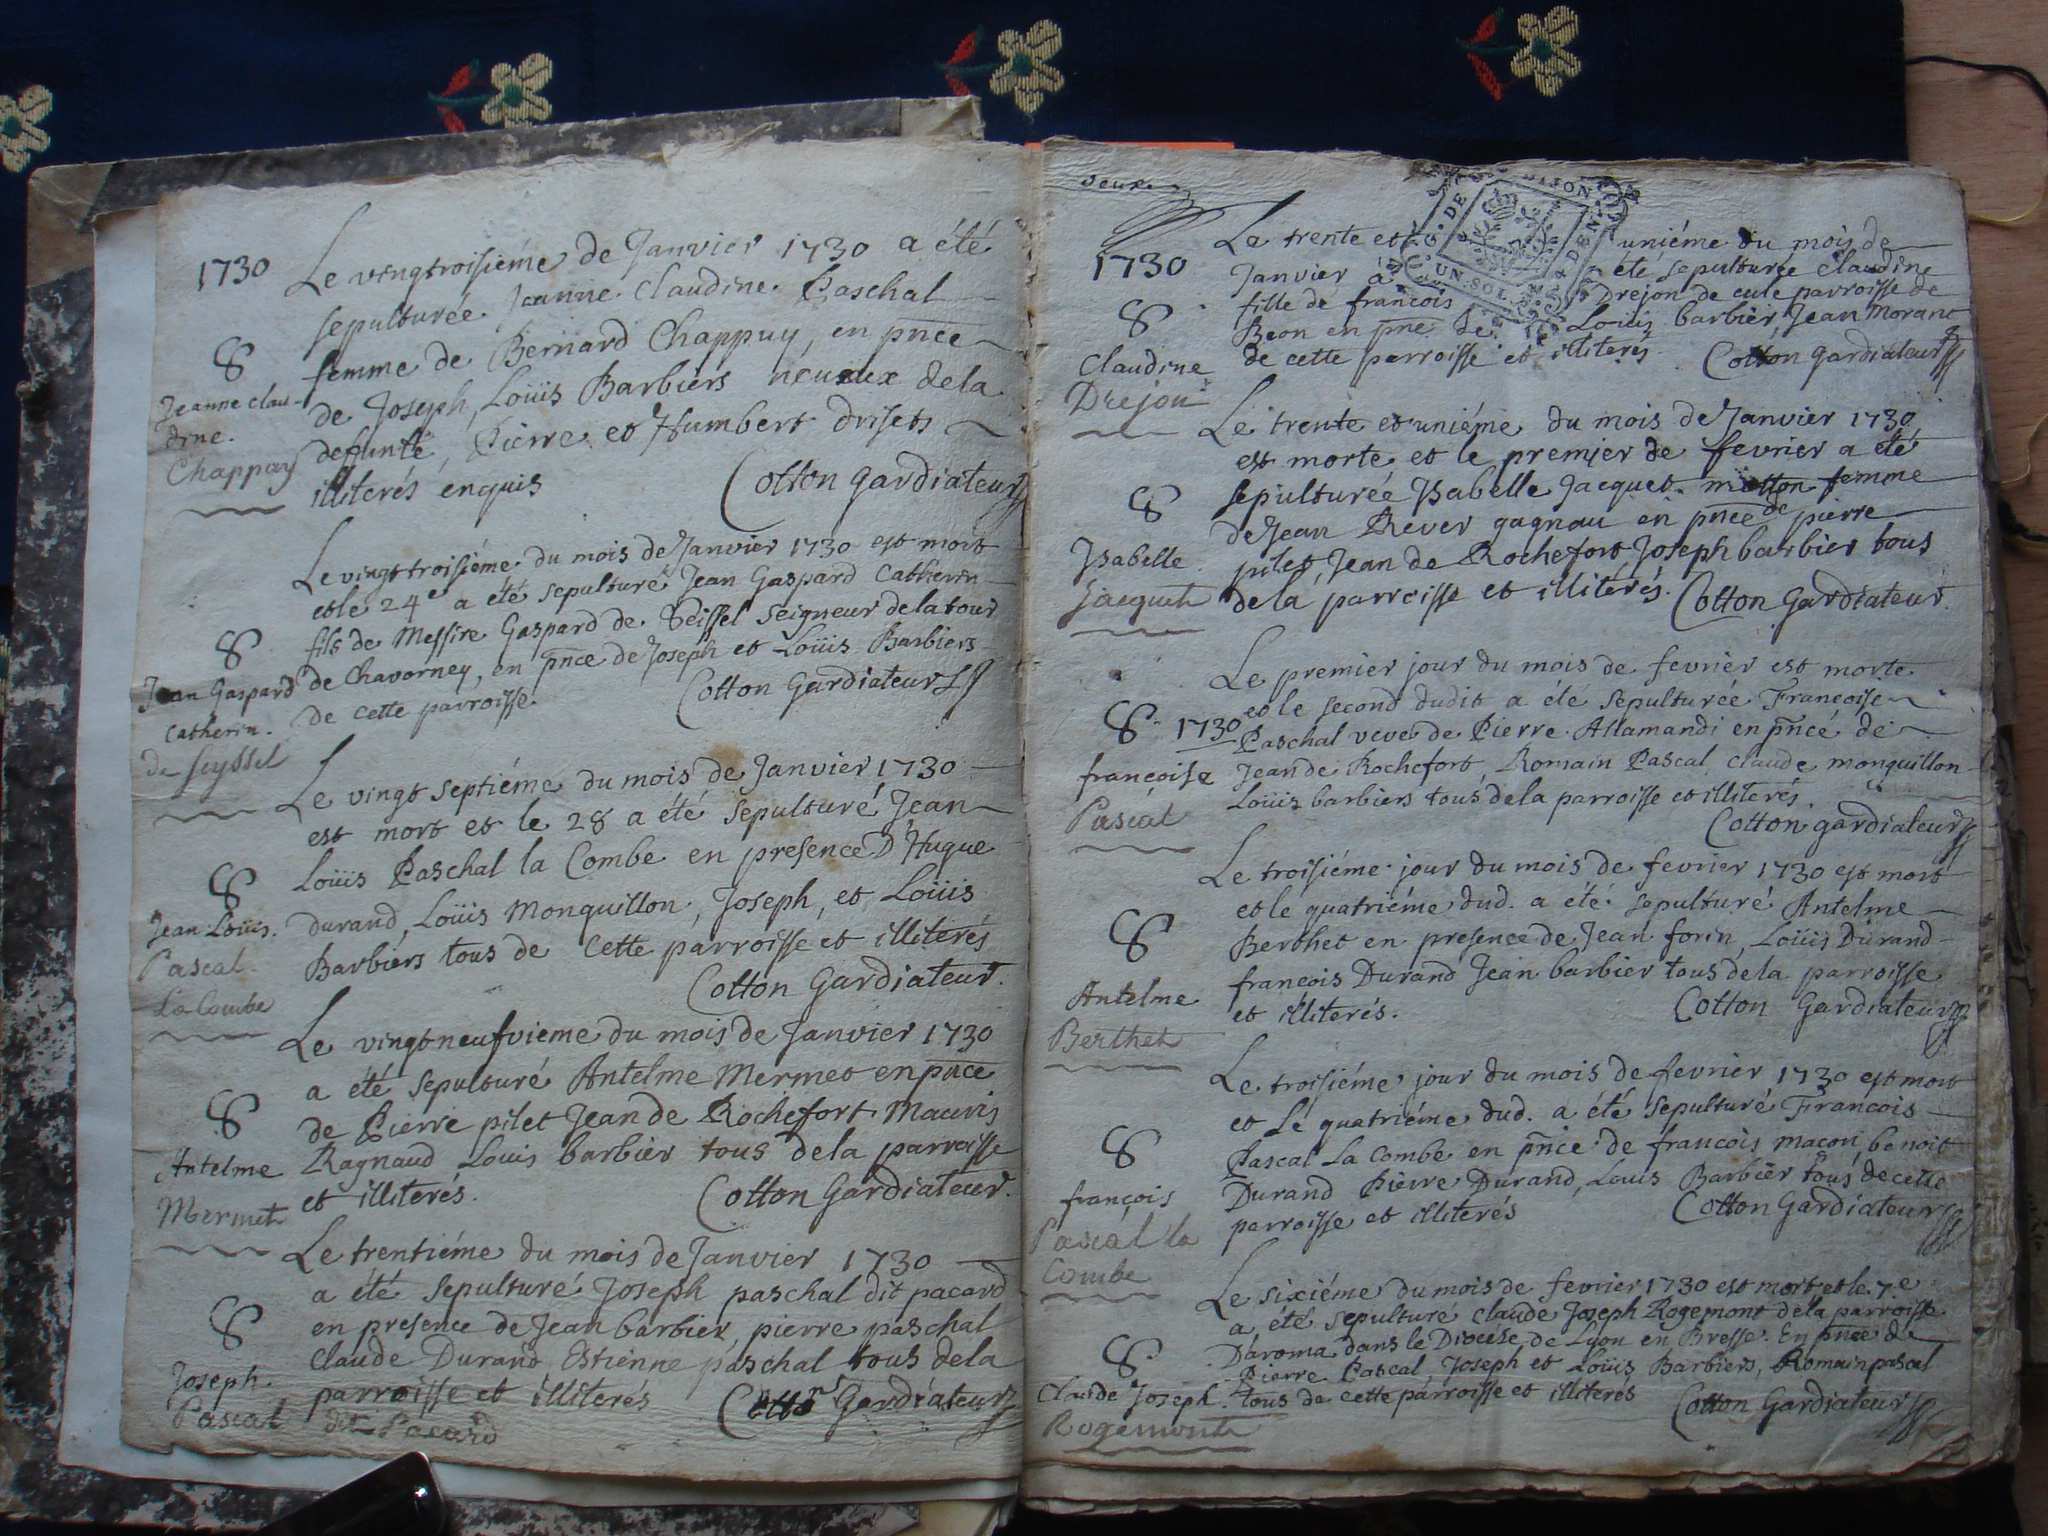 1730
Le vingtroisiéme de Janvier 1730 a été
sepulturée Jeanne Claudine Paschal
femme de Bernard Chappuy, en pnce
de Joseph, Loüis Barbiers neueux dela
deffunte, Pierre et Humbert drisets
illiterés enquis Cotton Gardiateur
8
Jeanne Clau-
dine.
Chappuy
Le vingt troisiéme du mois de Janvier 1730 est mort
et le 24e a été sepulturé Jean Gaspard Catherin
fils de Messire Gaspard de Seissel Seigneur dela tour
de Chavorney, en pnce de Joseph et Loüis Barbiers
de cette parroisse Cotton Gardiateur
8
Jean Gaspard
Catherin.
de Seyssel
Le vingt septiéme du mois de Janvier 1730
est mort et le 28 a été sepulturé Jean
Loüis Paschal la Combe en presence D'Hugue
durand, Loüis Monquillon, Joseph, et Loüis
Barbiers tous de cette parroisse et illiterés
Cotton Gardiateur.
8
Jean Loüis.
Pascal
La Combe
Le vingtneufvieme du mois de Janvier 1730
a été sepulturé Antelme Mermet en pnce
de Pierre pilet Jean de Rochefort Mauris
Ragnaud Louis barbier tous dela parroisse
et illiterés. Cotton Gardiateur.
8
Antelme
Mermet
Le trentiéme du mois de Janvier 1730
a été sepulturé Joseph paschal dit pacard
en presence de Jean barbier, pierre paschal
Claude Durand Estienne paschal tous dela
parroisse et illiterés Cotton Gardiateur
8
Joseph.
Pascal dit Pacard
deux
1730
DE DIJON
UN. SOL.
Le trente et uniéme du mois de
Janvier a été sepulturée Claudine
fille de françois Drejon de cule parroisse de
Beon en pnce de Loüis barbier, Jean Morant
de cette parroisse et illiterés Cotton Gardiateur
8
Claudine
Drejon
Le trente et uniéme du mois de Janvier 1730
est morte et le premier de fevrier a été
sepulturée Isabelle Jacquet motton femme
de Jean Rever gagnau en pnce de pierre
pilet, Jean de Rochefort, Joseph barbier tous
dela parroisse et illiterés. Cotton Gardiateur.
8
Isabelle.
Jacquet
Le premier jour du mois de fevrier est morte
et le second dudit a été sepulturée Françoise
Paschal veve de Pierre Allamandi en pnce de
Jean de Rochefort, Romain Pascal Claude monquillon
Loüis barbiers tous dela parroisse et illiterés.
Cotton gardiateur
8 1730
françoise
Pascal
Le troisiéme jour du mois de fevrier 1730 est mort
et le quatriéme dud. a été sepulturé Antelme
Berthet en presence de Jean forin, Loüis Durand
françois Durand Jean barbier tous dela parroisse
et illiterés. Cotton Gardiateur
8
Antelme
Berthet
Le troisiéme jour du mois de fevrier 1730 est mort
et Le quatriéme dud. a été sepulturé François
Pascal La Combe en pnce de françois maçon, benoit
Durand Pierre Durand, Louis Barbier tous de cette
parroisse et illiterés Cotton Gardiateur
8
françois
Pascal la
Combe
Le sixiéme du mois de fevrier 1730 est mort et le 7e
a été sepulturé Claude Joseph Rogemont dela parroisse
Daroma dans le Diocese de Lyon en Bresse. En pnce de
Pierre Pascal, Joseph et Loüis Barbiers, Romain pascal
tous de cette parroisse et illiterés Cotton Gardiateur
8
Claude Joseph.
Rogemont